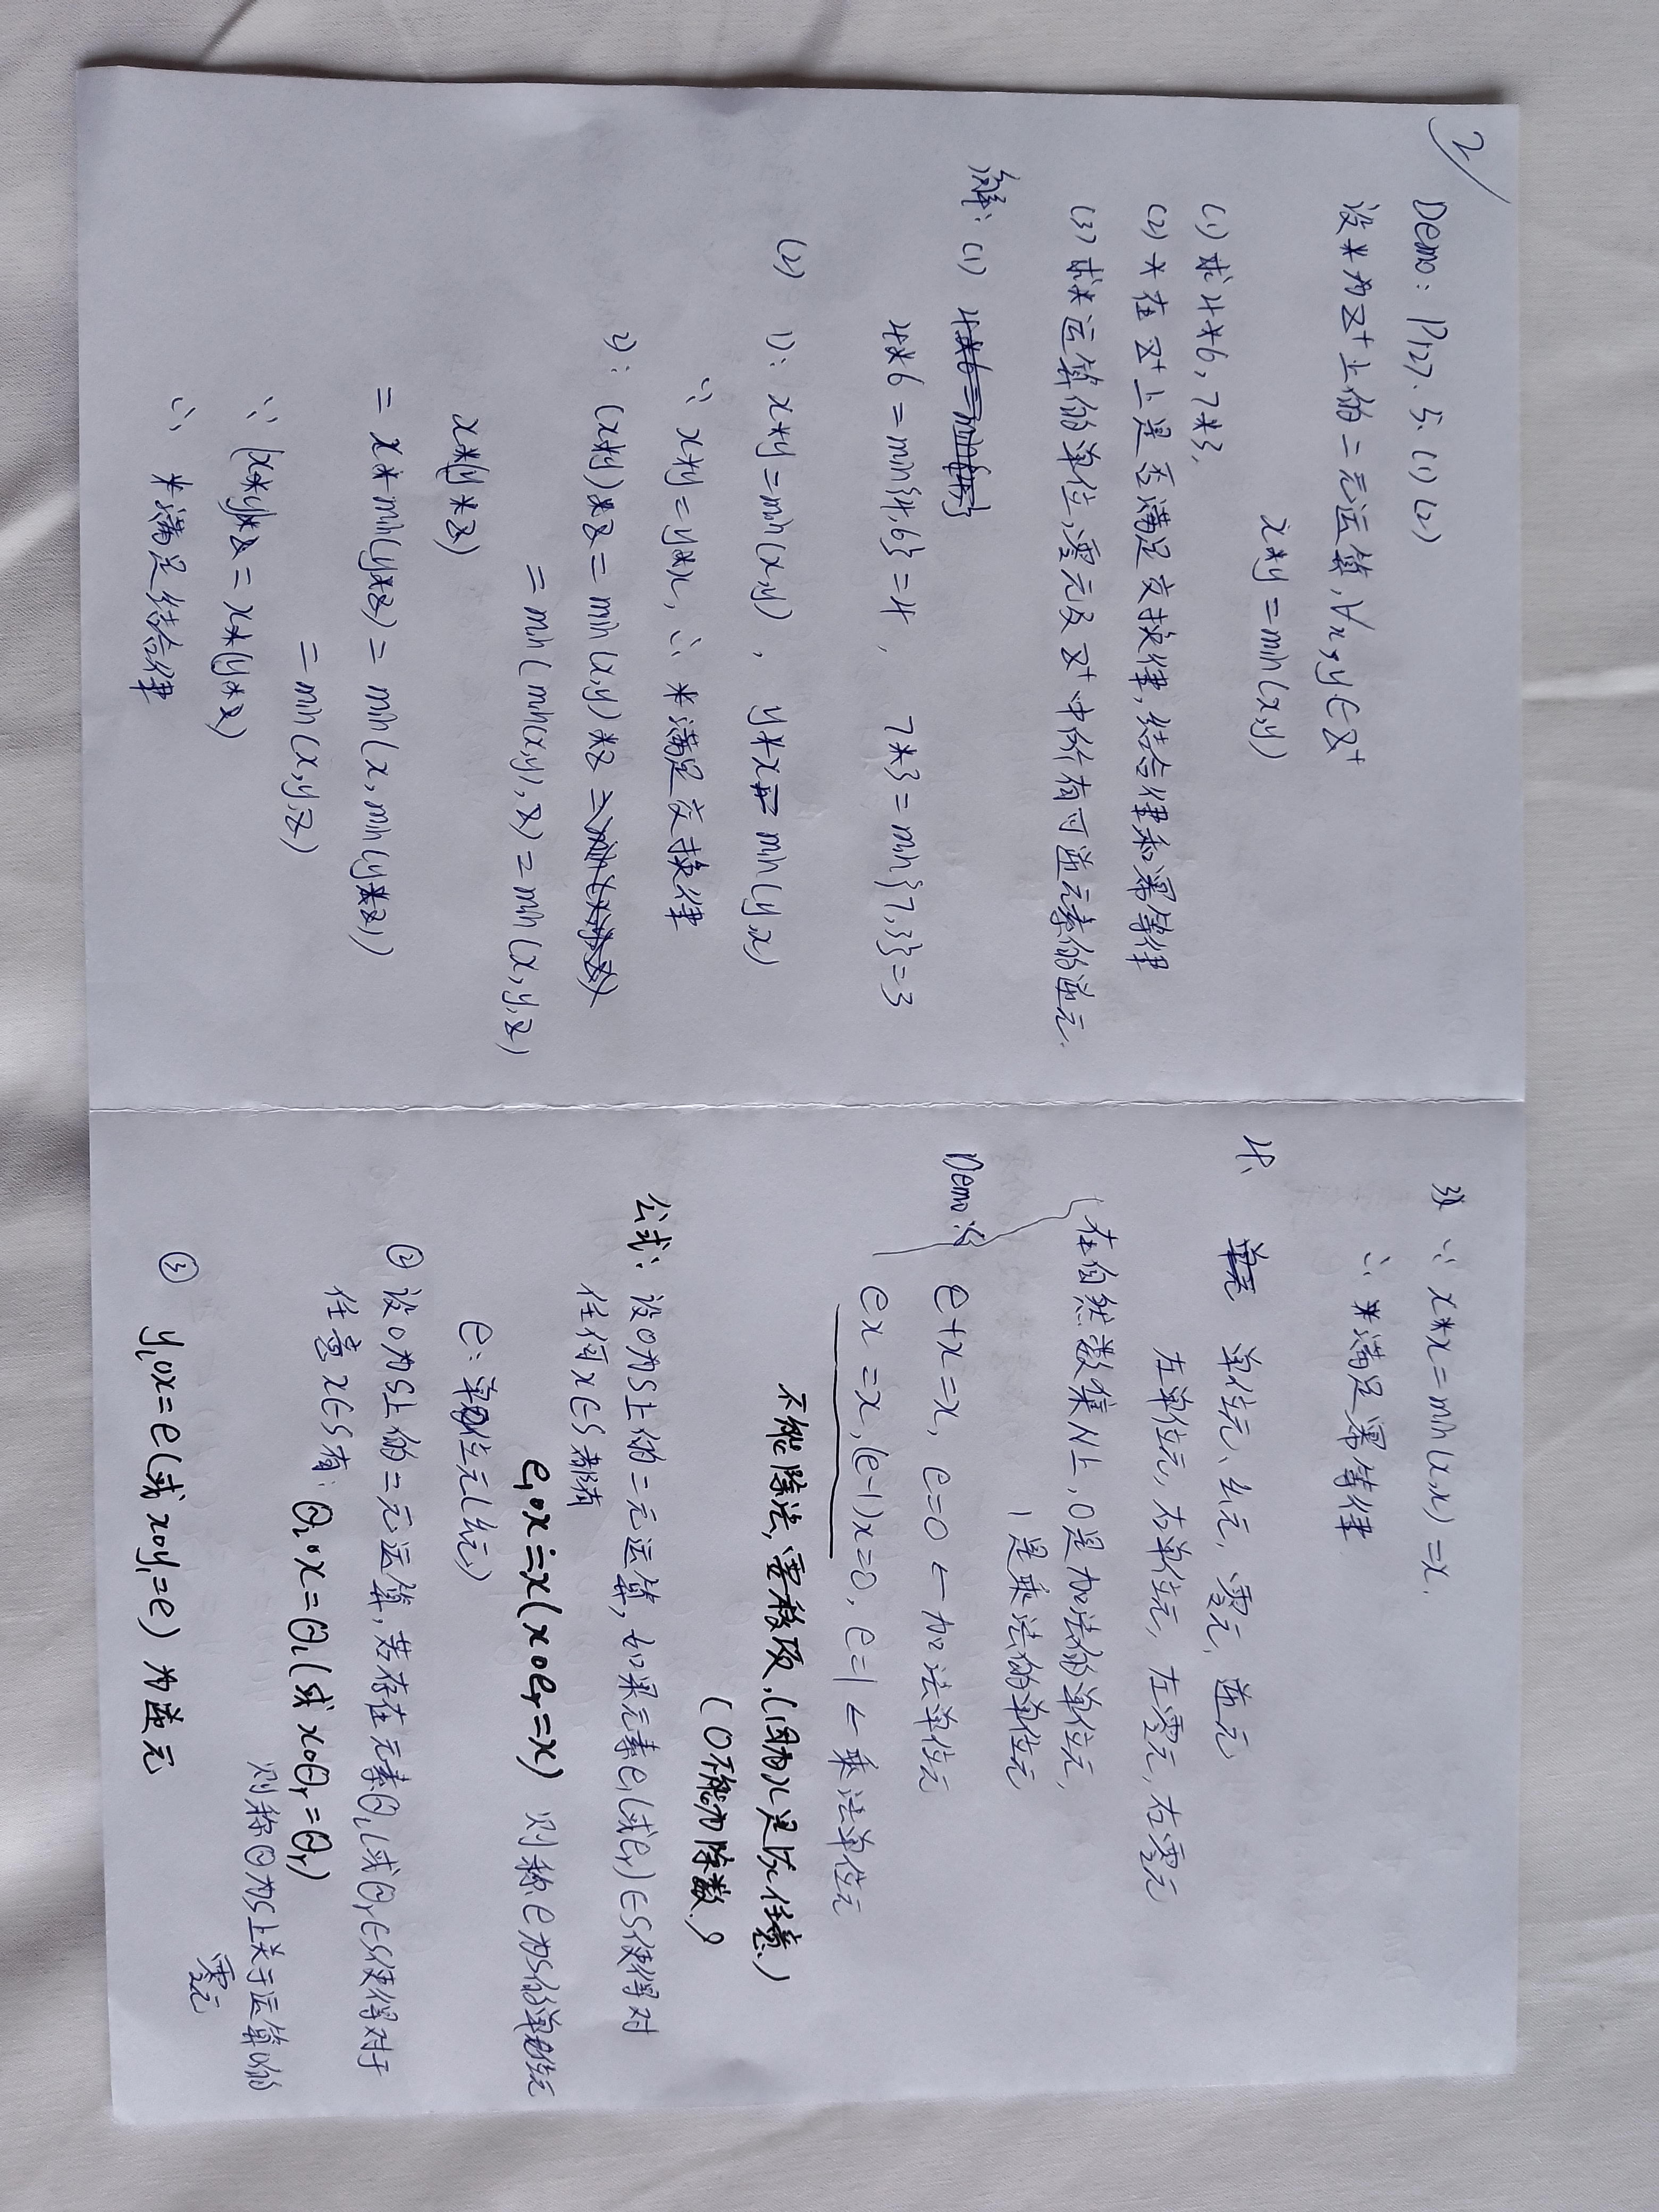 2
Demo: P127. 5. (1) (2)
设*为Z⁺上的二元运算,∀x,y∈Z⁺
x*y=min(x,y)
(1) 求4*6, 7*3.
(2) *在Z⁺上是否满足交换律,结合律和幂等律
(3) 求*运算的单位,零元及Z⁺中所有可逆元素的逆元.
解: (1) 4*6=min{4,}
4*6=min{4,6}=4, 7*3=min{7,3}=3
(2) 1): x*y=min(x,y), y*x=min(y,x)
∵ x*y=y*x, ∴ *满足交换律
2): (x*y)*z=min(x,y)*z=min(x,y,z)
=min(min(x,y),z)=min(x,y,z)
x*(y*z)
=x*min(y*z)=min(x,min(y*z))
=min(x,y,z)
∵ (x*y)*z=x*(y*z)
∴ *满足结合律
3) ∵ x*x=min(x,x)=x.
∴ *满足幂等律
4、 单元 单位元、幺元, 零元, 逆元
左单位元, 右单位元, 左零元, 右零元
在自然数集N上, 0是加法的单位元,
1是乘法的单位元
Demo: e+x=x, e=0 ← 加法单位元
ex=x, (e-1)x=0, e=1 ← 乘法单位元
不能除法, 要移项. (因为x是 任意.)
(0不能为除数.)
公式: 设o为S上的二元运算, 如果元素e₁(或eᵣ)∈S使得对
任何x∈S都有
e₁ox=x(xoeᵣ=x) 则称e为S的单位元
e: 单位元(幺元)
② 设o为S上的二元运算, 若存在元素θₗ(或θᵣ∈S使得对于
任意x∈S有: θₗox=θₗ(或xoθᵣ=θᵣ)
则称θ为S上关于运算o的
零元
③ yₗox=e(或xoy₁=e) 为逆元